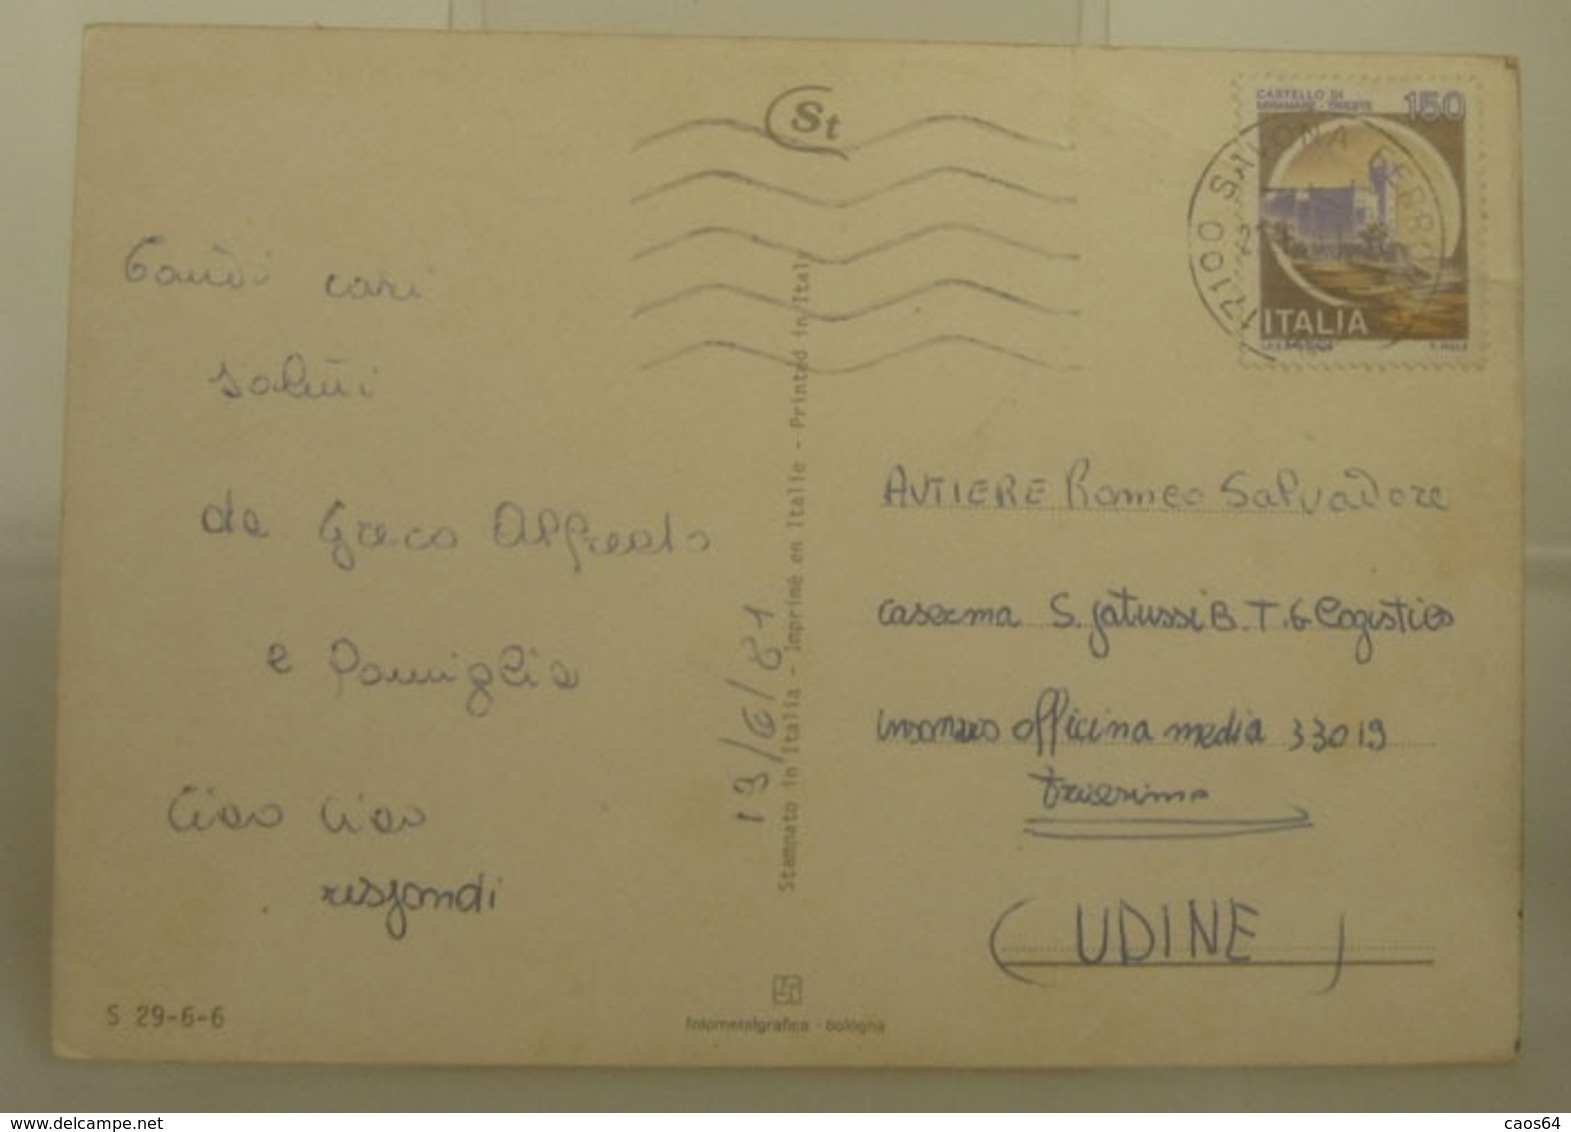 St
CASTELLO DI
MIRAMARE - TRIESTE
150
17100 SAVONA FERROVIA
ITALIA
Tanti cari
saluti
da Greco Alfredo
e Famiglia
Ciao Ciao
rispondi
13/6/81
Stampato in Italia - Imprimé en Italie - Printed in Italy
AUTIERE Romeo Salvadore
caserma S. Patussi B.T.G Logistico
officina media 33019
tricesimo
(UDINE)
S 29-6-6
fotometalgrafica - bologna
www.delcampe.net
caos64